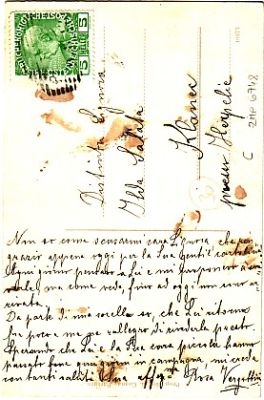 5 5
Distinta Signora
Ida Salata
Klanec
presso Herpelje
C
ZMP 6748
Non so come scusarmi cara Signora, che rin
grazio appena oggi per la Sua gentil cartolina
Ogni giorno pensavo a Lei e mi proponevo di
ma come vede, fino ad oggi non sono ar
rivata!
Da parte di mia sorella so, che Lei ritorna
fra poco e me ne rallegro di rivederla presto.
Sperando che Lei e la Sua cara piccola hanno
passato bene in campagna, mi creda
con tanti saluti Sua affez. Gisa Vergottini